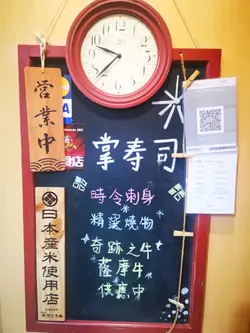 営業中
掌寿司
時令刺身
精選燒物
奇跡之牛
薩摩牛
供應中
日本産米使用店